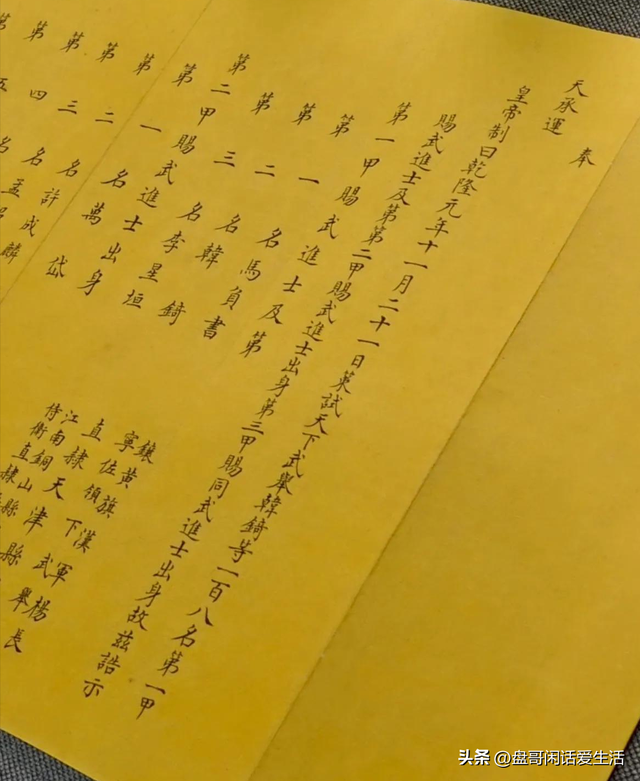 奉
天承運
皇帝制曰乾隆元年十一月二十一日策試天下武舉韓錡等一百八名第一甲
賜武進士及第第二甲賜武進士出身第三甲賜同武進士出身故茲誥示
第一甲賜武進士及第
第一名馬負書
鑲黃旗漢軍楊長
寧佐領下武舉
第二名韓錡
直隸天津
第三名李星垣
江南銅山縣
侍衛
第二甲賜武進士出身
第一名萬岱
直隸縣
第二名計成麟
第三名孟
第四名
第五名
头条 @盘哥闲话爱生活